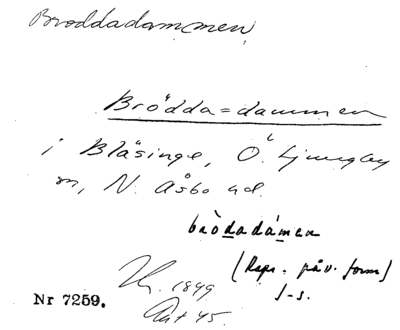 Broddadammen
Brödda=dammen
i Bläsinge, Ö. Ljungby
sn, N. Åsbo hd.
bròdadámen
(Repr. påv. form)
1849
Nr 7259.